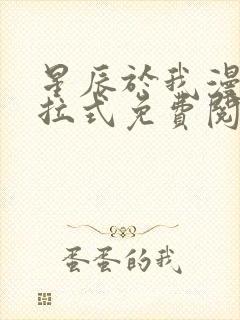 星辰於我漫
拉式免費閱
蛋蛋的我